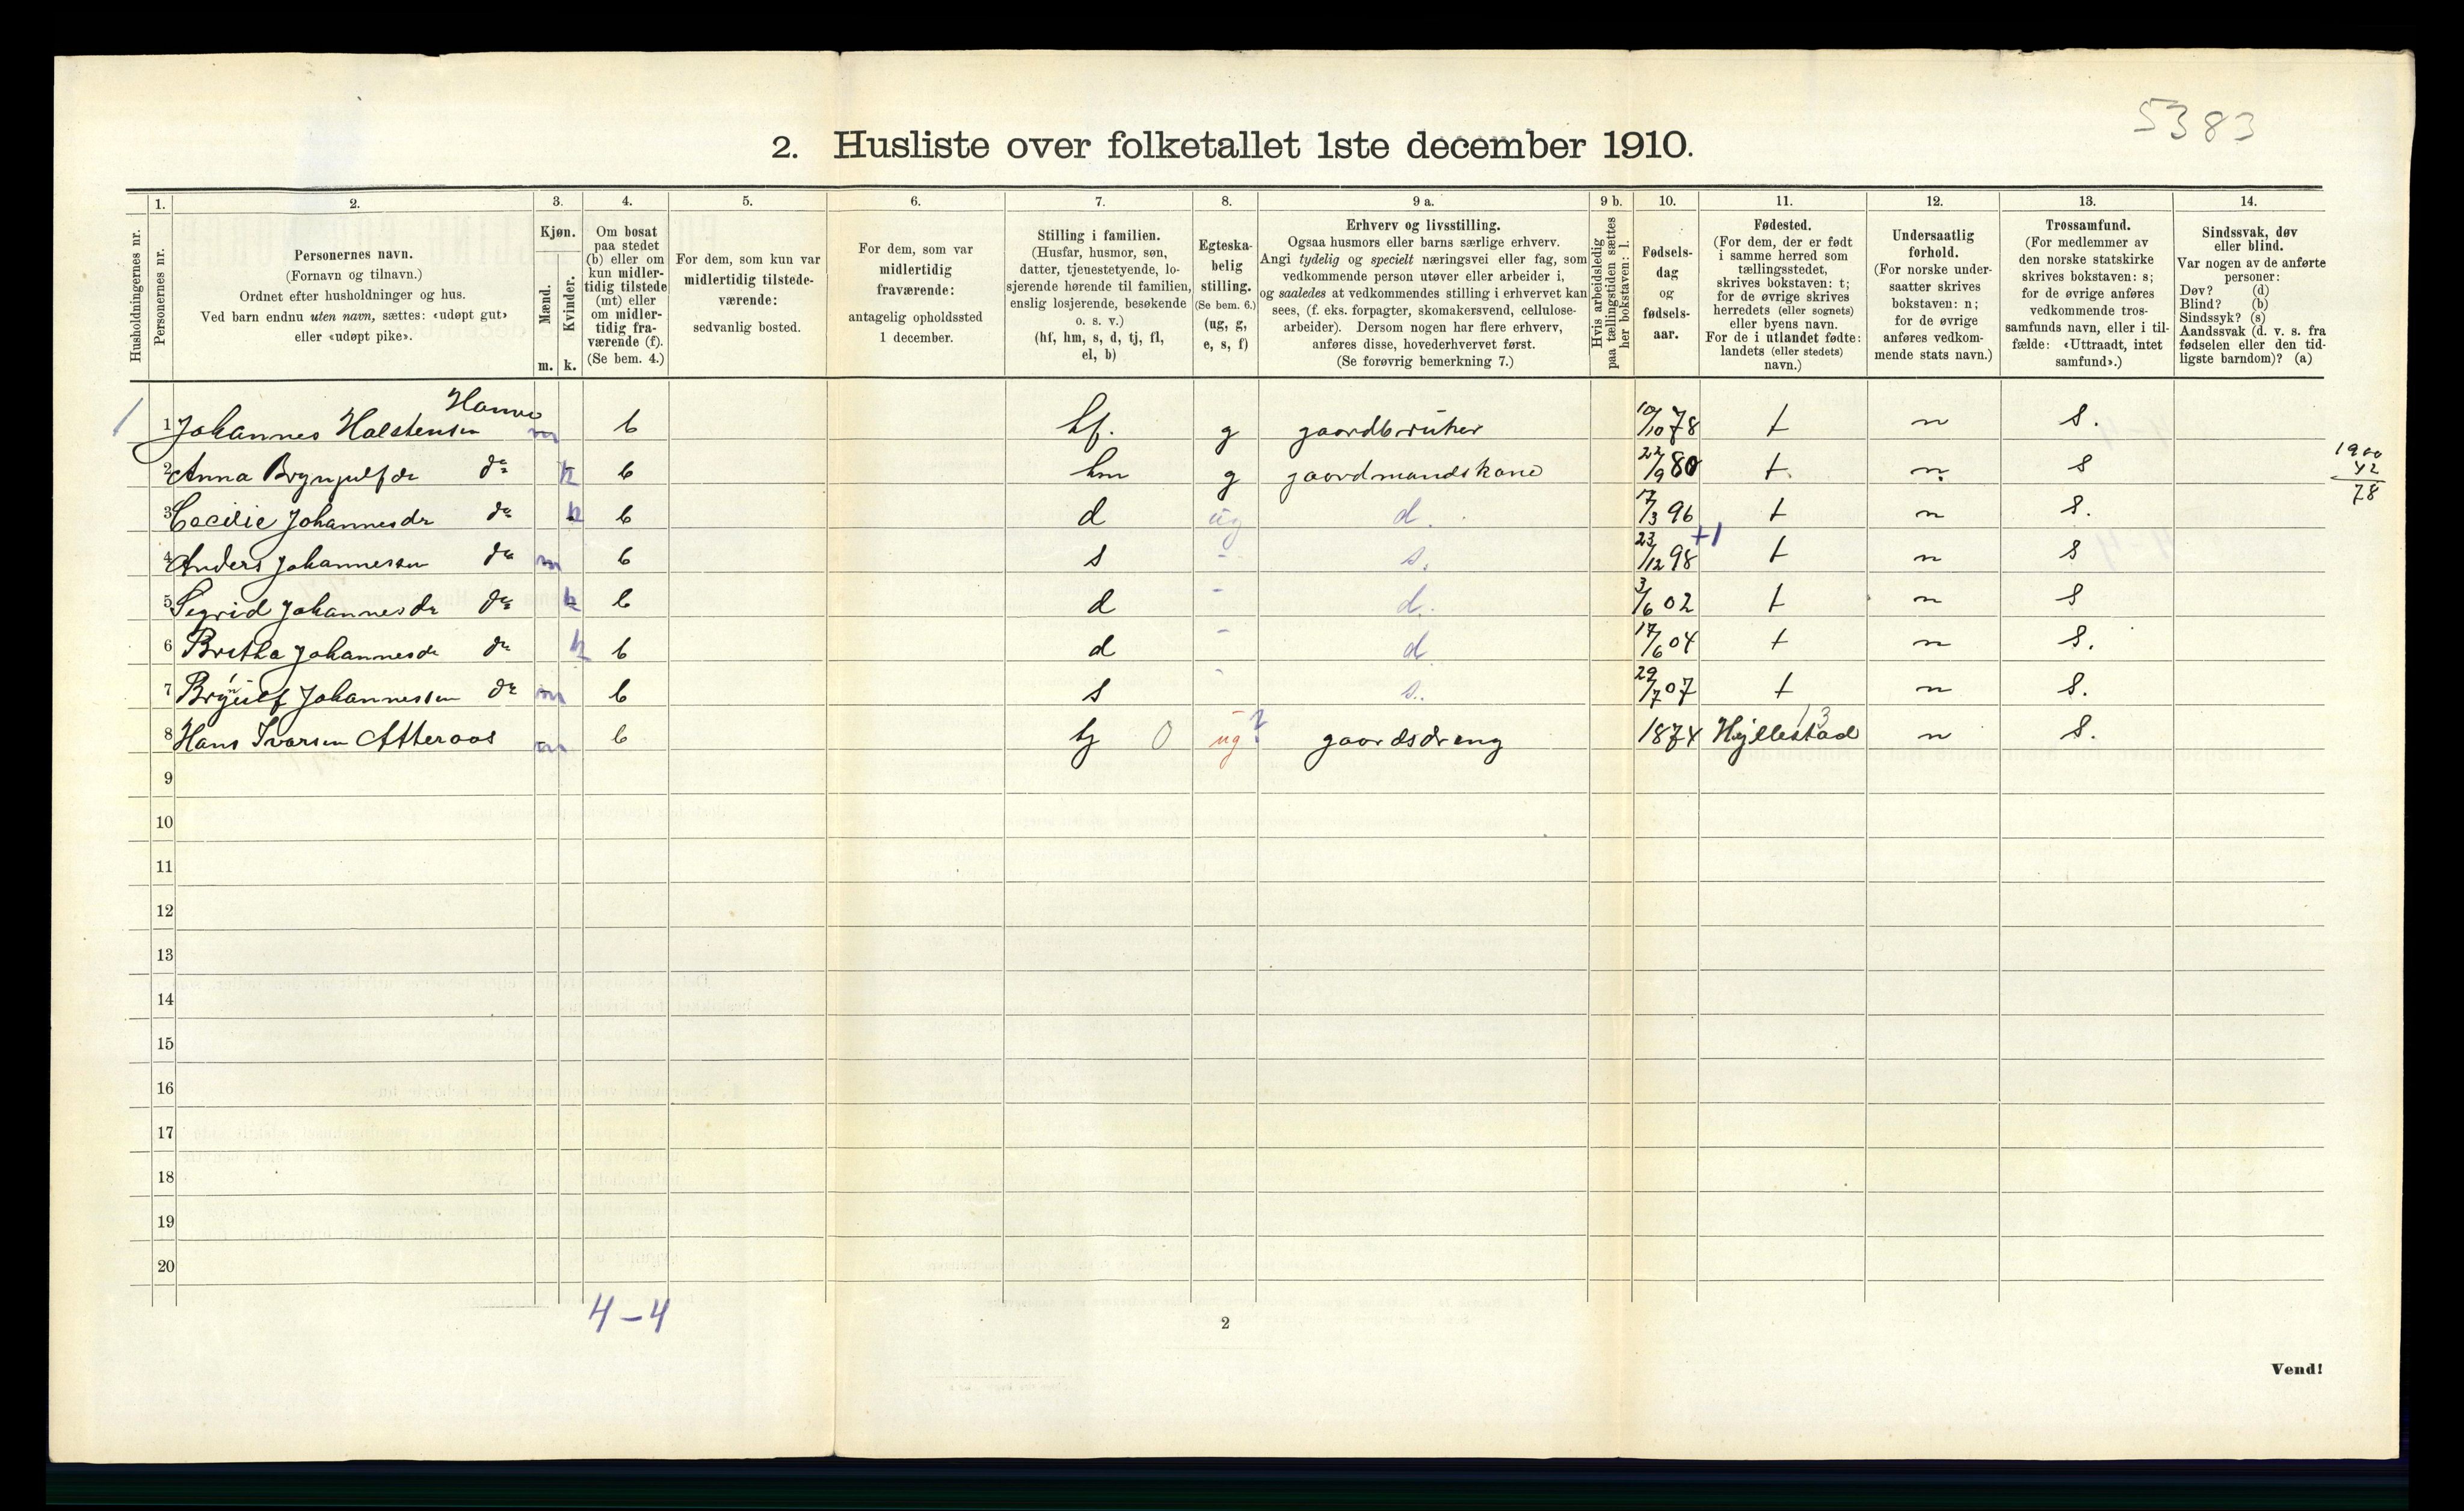 5383
2. Husliste over folketallet 1ste december 1910.
Husholdningernes nr.
1. Personernes nr.
2.
Personernes navn.
(Fornavn og tilnavn.)
Ordnet efter husholdninger og hus.
Ved barn endnu uten navn, sættes: «udøpt gut»
eller «udøpt pike».
3.
Kjøn.
Mænd. m.
Kvinder. k.
4.
Om bosat
paa stedet
(b) eller om
kun midler-
tidig tilstede
(mt) eller
om midler-
tidig fra-
værende (f).
(Se bem. 4.)
5.
For dem, som kun var
midlertidig tilstede-
værende:
sedvanlig bosted.
6.
For dem, som var
midlertidig
fraværende:
antagelig opholdssted
1 december.
7.
Stilling i familien.
(Husfar, husmor, søn,
datter, tjenestetyende, lo-
sjerende hørende til familien,
enslig losjerende, besøkende
o. s. v.)
(hf, hm, s, d, tj, fl,
el, b)
8.
Egteska-
belig
stilling.
(Se bem. 6.)
(ug, g,
e, s, f)
9 a.
Erhverv og livsstilling.
Ogsaa husmors eller barns særlige erhverv.
Angi tydelig og specielt næringsvei eller fag, som
vedkommende person utøver eller arbeider i,
og saaledes at vedkommendes stilling i erhvervet kan
sees, (f. eks. forpagter, skomakersvend, cellulose-
arbeider). Dersom nogen har flere erhverv,
anføres disse, hovederhvervet først.
(Se forøvrig bemerkning 7.)
9 b.
Hvis arbeidsledig
paa tællingstiden sættes
her bokstaven: l.
10.
Fødsels-
dag
og
fødsels-
aar.
11.
Fødested.
(For dem, der er født
i samme herred som
tællingsstedet,
skrives bokstaven: t;
for de øvrige skrives
herredets (eller sognets)
eller byens navn.
For de i utlandet fødte:
landets (eller stedets)
navn.)
12.
Undersaatlig
forhold.
(For norske under-
saatter skrives
bokstaven: n;
for de øvrige
anføres vedkom-
mende stats navn.)
13.
Trossamfund.
(For medlemmer av
den norske statskirke
skrives bokstaven: s;
for de øvrige anføres
vedkommende tros-
samfunds navn, eller i til-
fælde: «Uttraadt, intet
samfund».)
14.
Sindssvak, døv
eller blind.
Var nogen av de anførte
personer:
Døv? (d)
Blind? (b)
Sindssyk? (s)
Aandssvak (d. v. s. fra
fødselen eller den tid-
ligste barndom)? (a)
1 1 Johannes Halstensen m b hf. g gaardbruker 10/10 78 t n s.
2 Anna Brynjulfdr do k b hm g gaardmandskone 22/9 80 t. n. s
1900
42
78
3 Cecilie Johannesdr do k b d ug d. 17/3 96 t n s.
4 Anders Johannessen do m b s - s. 23/12 98 +1 t n s
5 Sigrid Johannesdr do k b d - d. 3/6 02 t n s
6 Britha Johannesdr do k b d - d 17/6 04 t n s.
7 Brynulf Johannessen do m b s - s. 29/7 07 t n s.
8 Hans Ivarsen Atteraas m b tj 0 ug ? gaardsdreng 1874 Hyllestad 13 n s.
9
10
11
12
13
14
15
16
17
18
19
20
4-4
2
Vend!